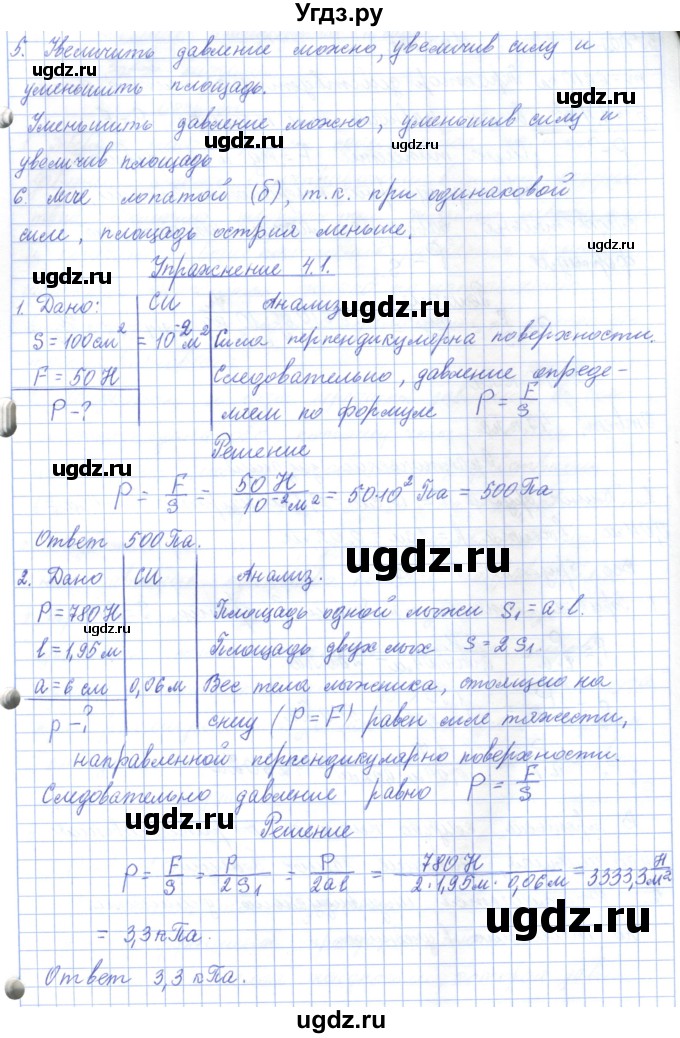 Угдз.ру
5. Увеличить давление можно, увеличив силу и
уменьшить площадь.
Уменьшить давление можно, уменьшив силу и
увеличив площадь
6. лопатой (б), т.к. при одинаковой
силе, площадь острия меньше.
Упражнение 4.1.
1. Дано: СИ Анализ
S = 100 см² = 10⁻² м² Сила перпендикулярна поверхности.
F = 50 Н Следовательно, давление опреде-
P - ? ляем по формуле P = F/S
Решение
P = F/S = 50 Н / 10⁻² м² = 50·10² Па = 500 Па
Ответ 500 Па.
2. Дано СИ Анализ.
P = 780 Н Площадь одной лыжи S₁ = a · l.
l = 1,95 м Площадь двух лыж S = 2S₁.
a = 6 см 0,06 м Вес тела лыжника, стоящего на
p - ? снегу (P = F) равен силе тяжести,
направленной перпендикулярно поверхности.
Следовательно давление равно P = F/S
Решение
P = F/S = P/2S₁ = P/2al = 780 Н / 2·1,95 м · 0,06 м = 3333,3 Н/м²
= 3,3 кПа.
Ответ 3,3 кПа.
ugdz.ru
ugdz.ru
ugdz.ru
ugdz.ru
ugdz.ru
ugdz.ru
ugdz.ru
ugdz.ru
ugdz.ru
ugdz.ru
ugdz.ru
ugdz.ru
ugdz.ru
ugdz.ru